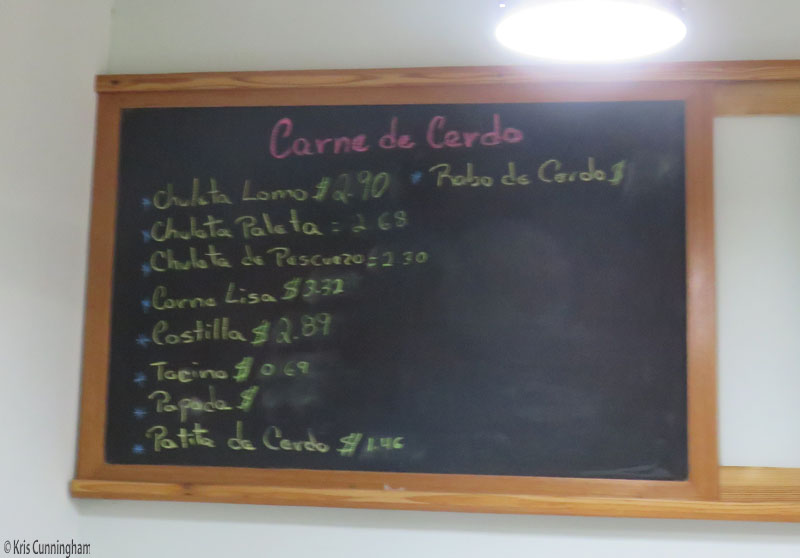 Carne de Cerdo
* Chuleta Lomo $ 2.90
* Chuleta Paleta = 2.68
* Chuleta de Pescuezo = 2.30
* Carne Lisa $ 3.32
* Costilla $ 2.89
* Tocino $ 0.69
* Papada $
* Patita de Cerdo $ 1.46
* Rabo de Cerdo $
© Kris Cunningham